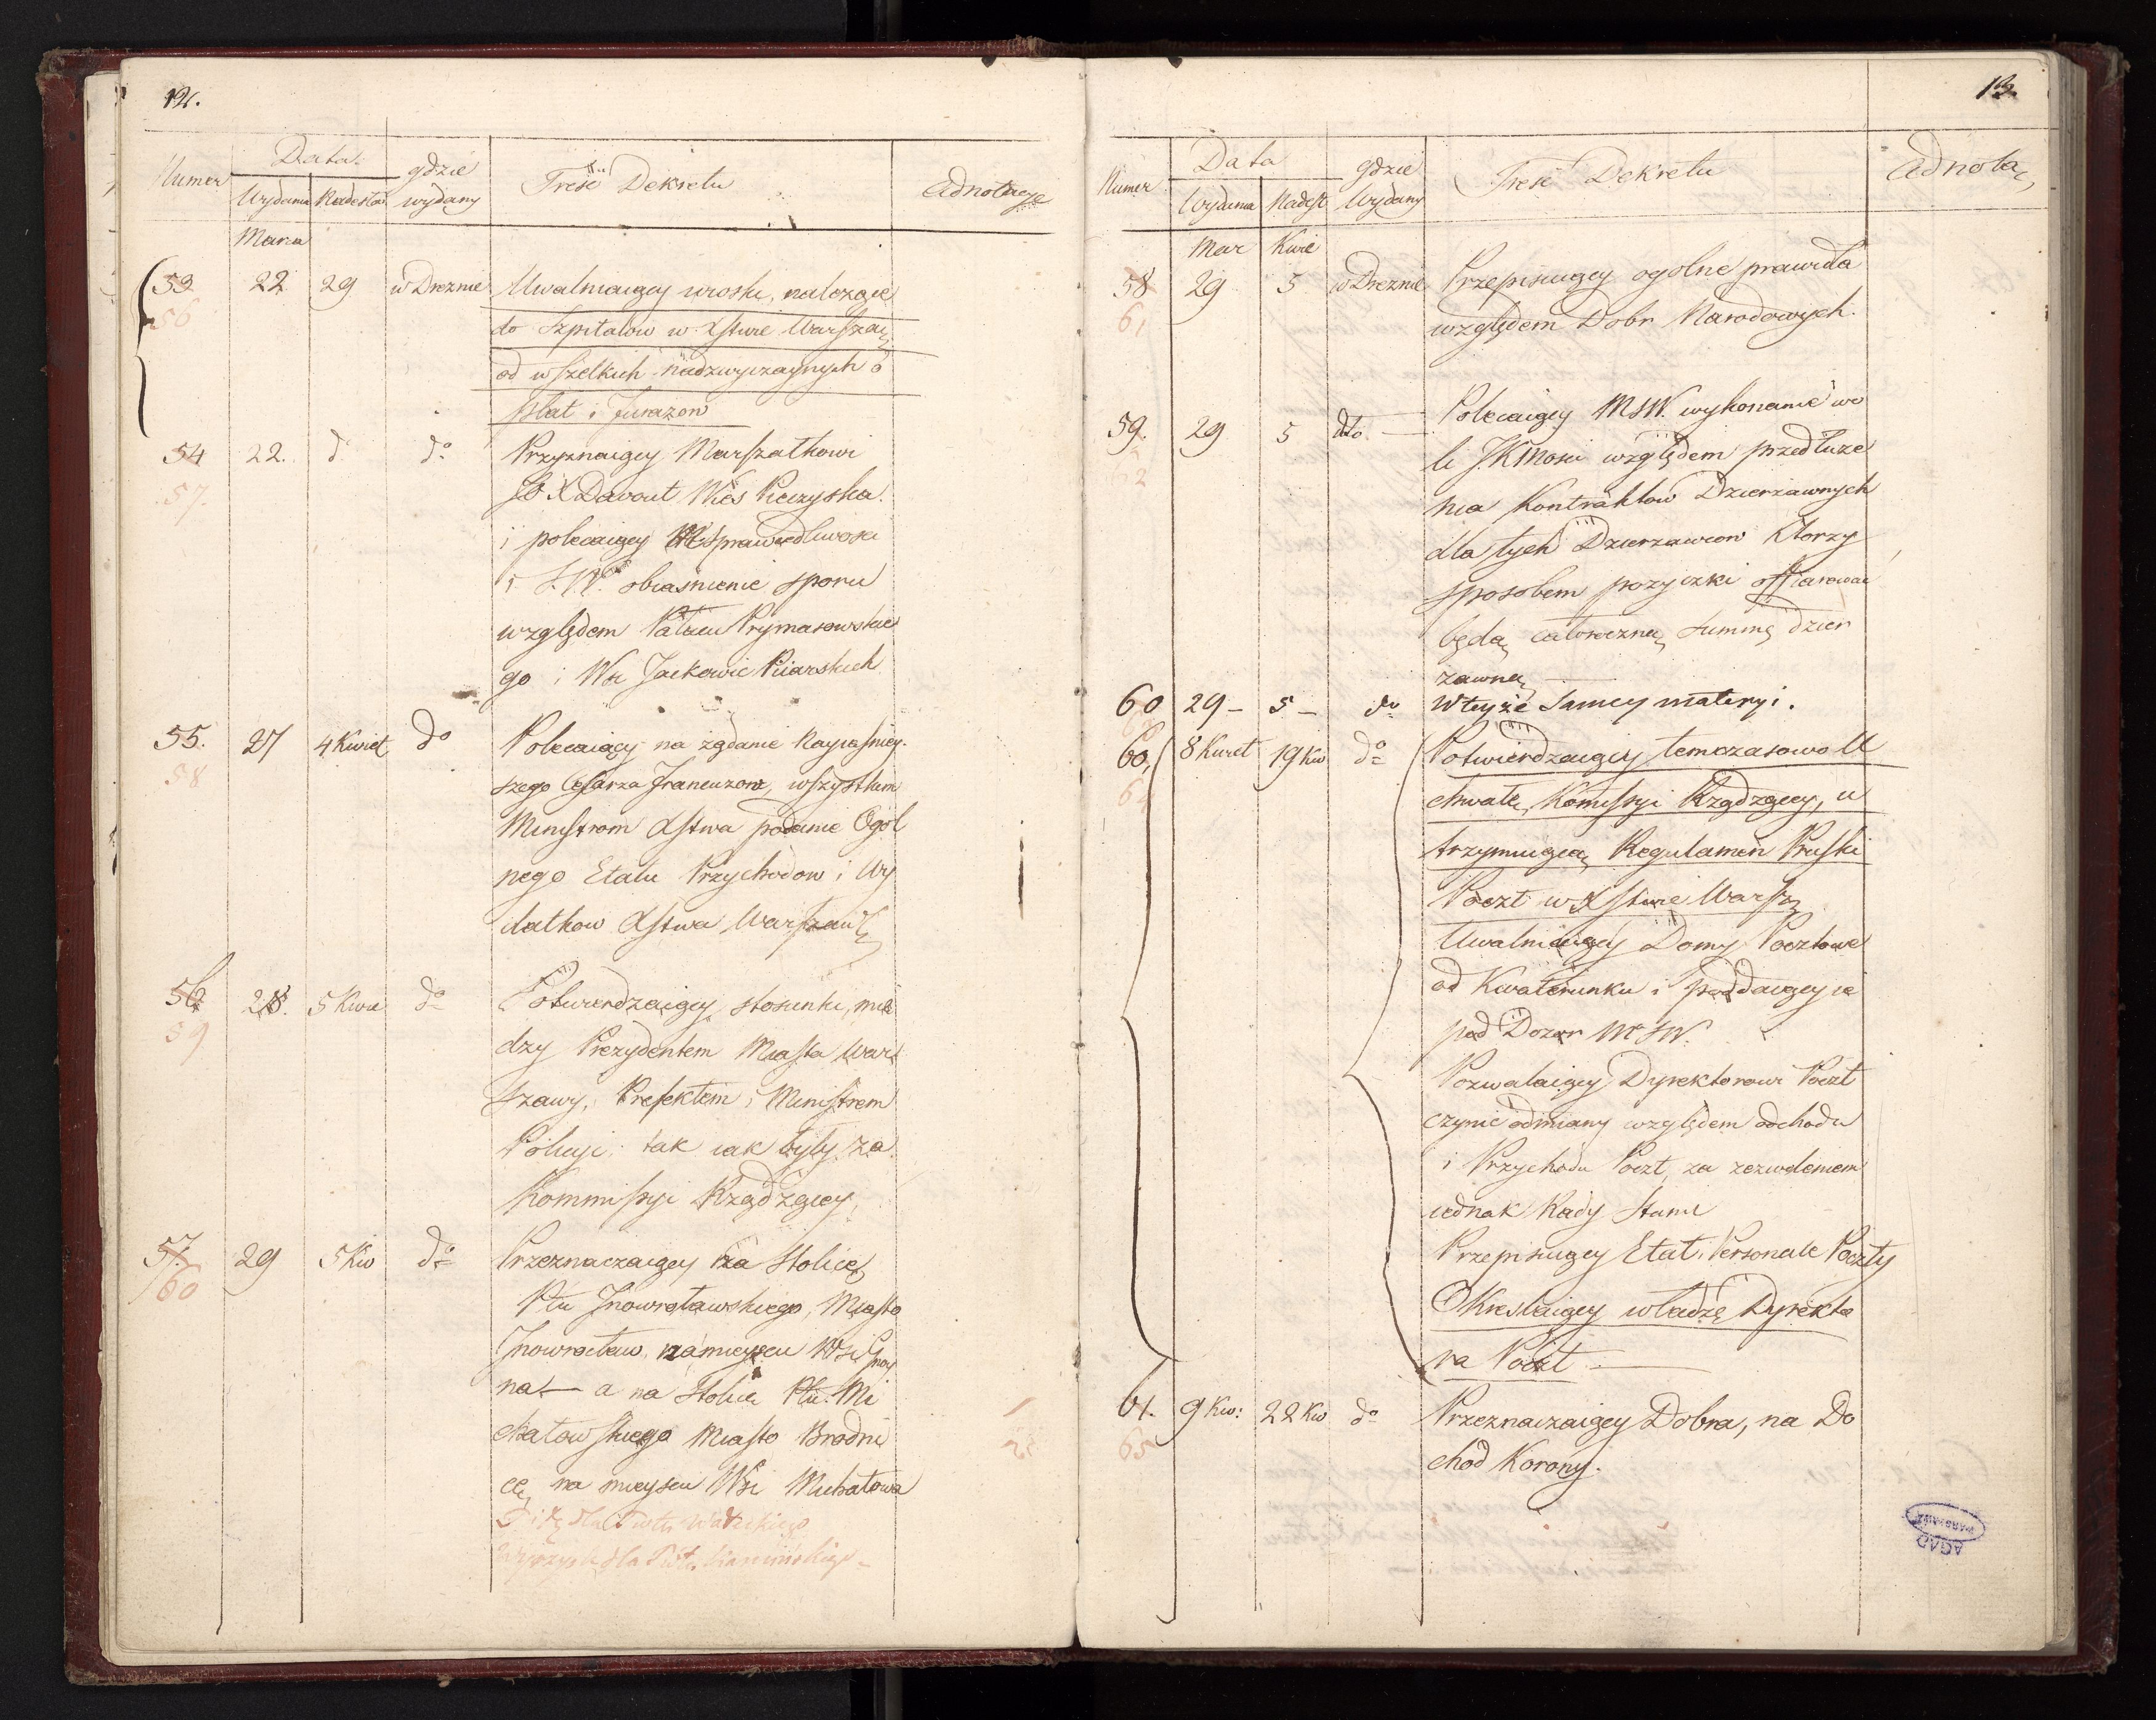 12.
Numer
Data
Wydania
Nadesła
gdzie
wydany
Treść Dekretu
Adnotacye
Marca
53 22 29 w Dreznie Uwalniaiący wioski, należące
56
do Szpitalow w Xstwie Warszaw
od wszelkich nadzwyczaynych o
płat i furazon
54 22. do do Przyznaiący Marszałkowi
57.
Davout Wieś Pieczyska.
i polecaiący M Sprawiedliwości
i S.W. obiasnienie sporu
względem Pałacu Prymasowskie
go i Wsi Jackowic Piiarskich
55. 27 4 Kwiet do Polecaiący na żądanie Nayiaśniey-
58
szego Cesarza Francuzow, wszystkim
Ministrom Xstwa podanie Ogol
nego Etatu Przychodow i Wy
datkow Xstwa Warszaw
56 28. 5 Kwie do Potwierdzaiący stosunki, mię
59
dzy Prezydentem Miasta War
szawy, Prefektem i Ministrem
Policyi tak iak były za
Kommissyi Rządzącey.
57. 29 5 Kw do Przeznaczaiący za Stolicę
60
Ptu Jnowrocławskiego, Miasto
Jnowrocław, na mieyscu Wsi Gnoy
na — a na Stolicę Ptu Mi
chałowskiego Miasto Brodni
cę na mieyscu Wsi Michałowa
dla Powtu Wałeckiego
dla Powt. Kamińskiego -
13.
Numer
Data
Wydania
Nadesł
gdzie
Wydany
Treść Dekretu
Adnotac
Mar Kwie
58 29 5 w Dreznie Przepisuiący ogolne prawidła
61
względem Dobr Narodowych.
59. 29 5 dto. Polecaiący MSW. wykonanie wo
62
li JKMości względem przedłuże
nia Kontraktow Dzierżawnych
dla tych Dzierzawcow Ktorzy
sposobem pożyczki offiarować
będą całoroczną summę dzier
żawną
60 29 - 5 - do W teyże samey materyi.
60, 8 Kwiet 19 Kw do Potwierdzaiący temczasowo U
64
chwałę Komissyi Rządzącey, u
trzymuiącą Regulamen Pruski
Poczt w Xstwie Warsz
Uwalniaiący Domy Pocztowe
od Kwaterunku i poddaiący ie
pod Dozor MSW.
Pozwalaiący Dyrektorowi Poczt
czynić odmiany względem odchodu
i Przychodu Poczt, za zezwoleniem
iednak Rady Stanu
Przepisuiący Etat i Personale Poczty
Okreslaiący władzę Dyrekto
ra Poczt
61. 9 Kw: 22 Kw do Przeznaczaiący Dobra, na Do
65
chod Korony.
WARSZAWA
AGAD